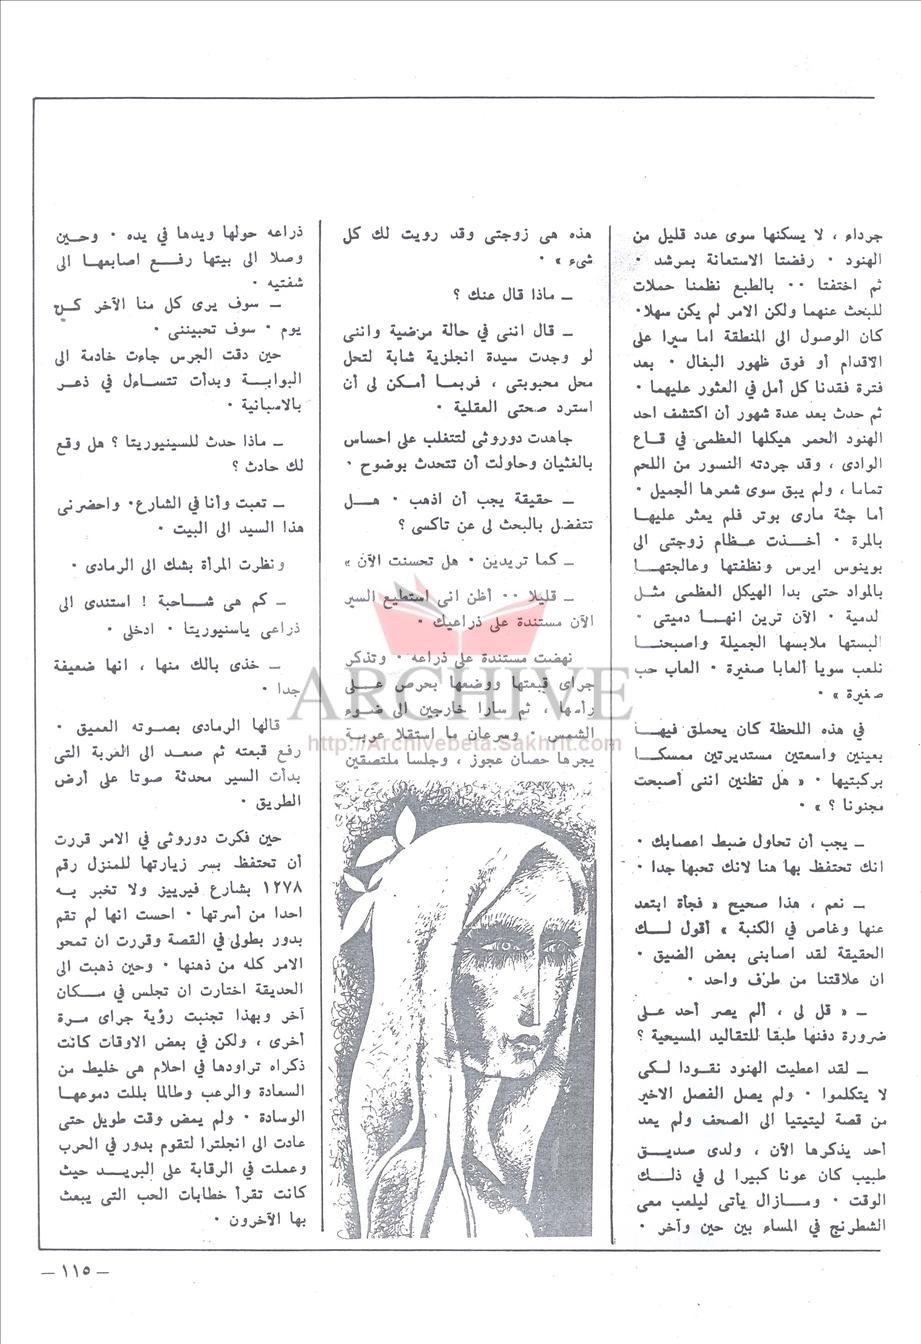 جرداء ، لا يسكنها سوى عدد قليل من
الهنود · رفضتا الاستعانة بمرشد ·
ثم اختفتا ·· بالطبع نظمنا حملات
للبحث عنهما ولكن الامر لم يكن سهلا·
كان الوصول الى المنطقة اما سيرا على
الاقدام أو فوق ظهور البغال · بعد
فترة فقدنا كل أمل في العثور عليهما ·
ثم حدث بعد عدة شهور أن اكتشف احد
الهنود الحمر هيكلها العظمى في قـاع
الوادى ، وقد جردته النسور من اللحم
تماما ، ولم يبق سوى شعرها الجميل ·
أما جثة مارى بوتر فلم يعثر عليهـا
بالمرة · أخـذت عـظام زوجتى الى
بوينوس ايرس ونظفتها وعالجتهـا
بالمواد حتى بدا الهيكل العظمى مثـل
لدمية · الآن ترين انهـا دميتى ·
البستها ملابسها الجميلة واصبحنـا
نلعب سويا ألعابا صغيرة · العاب حب
صغيرة » ·
في هذه اللحظة كان يحملق فيهـا
بعينين واسعتين مستديرتين ممسكـا
بركبتيها · « هل تظنين اننى أصبحت
مجنونا ؟ » ·
ــ يجب أن تحاول ضبط اعصابك ·
انك تحتفظ بها هنا لانك تحبها جدا ·
ــ نعم ، هذا صحيح « فجأة ابتعد
عنها وغاص في الكنبة » أقول لـك
الحقيقة لقد اصابنى بعض الضيق ·
ان علاقتنا من طرف واحد ·
ــ « قل لى ، ألم يصر أحد عـلى
ضرورة دفنها طبقا للتقاليد المسيحية ؟
ــ لقد اعطيت الهنود نقـودا لـكى
لا يتكلموا · ولم يصل الفصل الاخير
من قصة ليتيتيا الى الصحف ولم يعد
أحد يذكرها الآن ، ولدى صديـق
طبيب كان عونا كبيرا لى في ذلـك
الوقت · ومـازال يأتى ليلعب معى
الشطرنج في المساء بين حين وآخر ·
هذه هى زوجتى وقد رويت لك كل
شىء » ·
ــ ماذا قال عنك ؟
ــ قال اننى في حالة مرضية واننى
لو وجدت سيدة انجلزية شابة لتحل
محل محبوبتى ، فربمـا أمـكن لى أن
استرد صحتى العقلية ·
جاهدت دوروثى لتتغلب على احساس
بالغثيان وحاولت أن تتحدث بوضوح ·
ــ حقيقة يجب أن اذهب · هــل
تتفضل بالبحث لى عن تاكسى ؟
ــ كما تريدين · هل تحسنت الآن »
ــ قليلا ·· أظن انى استطيع السير
الآن مستندة على ذراعيك ·
نهضت مستندة على ذراعه · وتذكر
جراى قبعتها ووضعها بحرص عـلى
رأسها ، ثم سارا خارجين الى ضـوء
الشمس · وسرعان ما استقلا عربـة
يجرها حصان عجوز ، وجلسا ملتصقين
ذراعه حولها ويدها في يده · وحـين
وصلا الى بيتها رفـع اصابعهـا الى
شفتيه ·
ــ سوف يرى كل منا الآخر كـل
يوم · سوف تحبيننى ·
حين دقت الجرس جاءت خادمة الى
البوابـة وبدأت تتسـاءل في ذعـر
بالاسبانية ·
ــ ماذا حدث للسينيوريتا ؟ هل وقع
لك حادث ؟
ــ تعبت وأنا في الشارع· واحضرنى
هذا السيد الى البيت ·
ونظرت المرأة بشك الى الرمادى ·
ــ كم هى شـاحبة ! استندى الى
ذراعى ياسنيوريتا · ادخلى ·
ــ خذى بالك منها ، انها ضعيفة
جدا ·
قالها الرمادى بصـوته العميق ·
رفع قبعته ثم صعـد الى العربة التى
بدأت السير محدثة صوتا على أرض
الطريق ·
حين فكرت دوروثى في الامر قررت
أن تحتفظ بسر زيارتها للمنزل رقم
١٢٧٨ بشارع فيرييز ولا تخبر بـه
احدا من أسرتها · احست انها لم تقم
بدور بطولى في القصة وقررت ان تمحو
الامر كله من ذهنها · وحين ذهبت الى
الحديقة اختارت ان تجلس في مـكان
آخر وبهذا تجنبت رؤية جراى مـرة
أخرى ، ولكن في بعض الاوقات كانت
ذكراه تراودها في احلام هى خليط من
السعادة والرعب وطالما بللت دموعهـا
الوسادة · ولم يمض وقت طويل حتى
عادت الى انجلترا لتقوم بدور في الحرب
وعملت في الرقابة على البريـد حيث
كانت تقرأ خطابات الحب التى يبعث
بها الآخرون ·
ARCHIVE
http://Archivebeta.Sakhrit.com
ــ ١١٥ ــ